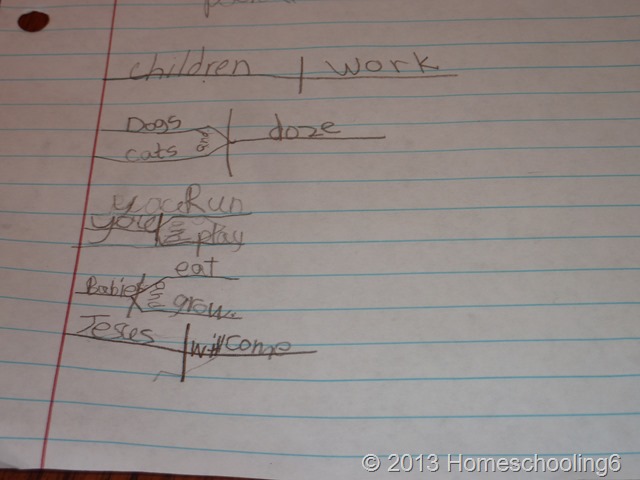 children | work
Dogs
and doze
cats
Run
you and play
eat
Babies and
grow
Jesus | will come
© 2013 Homeschooling6